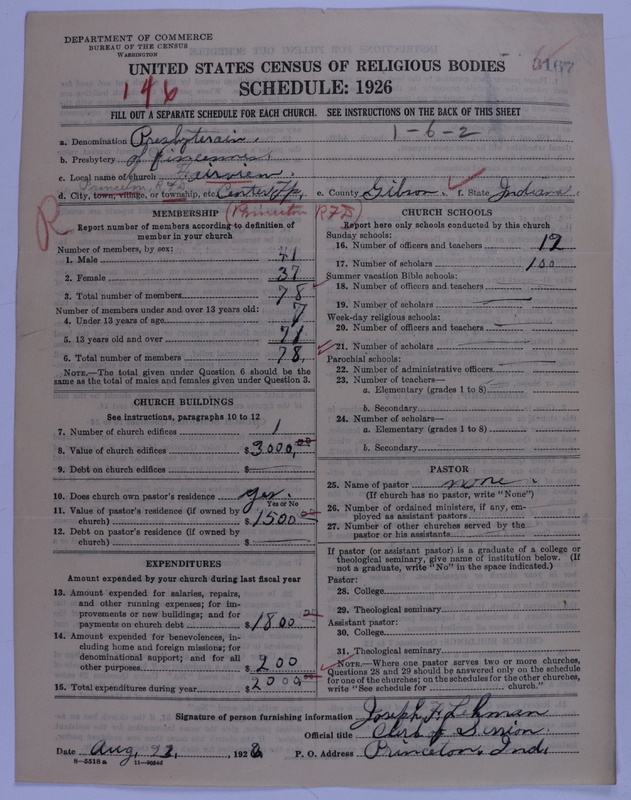 DEPARTMENT OF COMMERCE
BUREAU OF THE CENSUS
WASHINGTON
3167
UNITED STATES CENSUS OF RELIGIOUS BODIES
SCHEDULE: 1926
146
FILL OUT A SEPARATE SCHEDULE FOR EACH CHURCH. SEE INSTRUCTIONS ON THE BACK OF THIS SHEET
1-6-2
a. Denomination Presbyterain.
b. Presbytery of Vincennes
c. Local name of church Fairview.
Princeton, RFD
d. City, town, village, or township, etc. Center Tp. e. County Gibson f. State Indiana
R
MEMBERSHIP (Princeton RFD)
Report number of members according to definition of member in your church
Number of members, by sex:
1. Male 41
2. Female 37
3. Total number of members 78
Number of members under and over 13 years old:
4. Under 13 years of age 7
5. 13 years old and over 71
6. Total number of members 78.
NOTE.—The total given under Question 6 should be the same as the total of males and females given under Question 3.
CHURCH BUILDINGS
See instructions, paragraphs 10 to 12
7. Number of church edifices 1
8. Value of church edifices $3000,00
9. Debt on church edifices $
10. Does church own pastor's residence yes.
Yes or No
11. Value of pastor's residence (if owned by church) $1500 00
12. Debt on pastor's residence (if owned by church) $
EXPENDITURES
Amount expended by your church during last fiscal year
13. Amount expended for salaries, repairs, and other running expenses; for improvements or new buildings; and for payments on church debt $1800 00
14. Amount expended for benevolences, including home and foreign missions; for denominational support; and for all other purposes $200
15. Total expenditures during year $2000 00
CHURCH SCHOOLS
Report here only schools conducted by this church
Sunday schools:
16. Number of officers and teachers 12
17. Number of scholars 100
Summer vacation Bible schools:
18. Number of officers and teachers
19. Number of scholars
Week-day religious schools:
20. Number of officers and teachers
21. Number of scholars
Parochial schools:
22. Number of administrative officers
23. Number of teachers—
a. Elementary (grades 1 to 8)
b. Secondary
24. Number of scholars—
a. Elementary (grades 1 to 8)
b. Secondary
PASTOR
25. Name of pastor none.
(If church has no pastor, write "None")
26. Number of ordained ministers, if any, employed as assistant pastors
27. Number of other churches served by the pastor or his assistants
If pastor (or assistant pastor) is a graduate of a college or theological seminary, give name of institution below. (If not a graduate, write "No" in the space indicated.)
Pastor:
28. College
29. Theological seminary
Assistant pastor:
30. College
31. Theological seminary
NOTE.—Where one pastor serves two or more churches, Questions 28 and 29 should be answered only on the schedule for one of the churches; on the schedules for the other churches, write "See schedule for church."
Signature of person furnishing information Joseph F. Lehman
Official title Clerk of Session
Date Aug, 23, 1926 P. O. Address Princeton, Ind.
8—5518 a